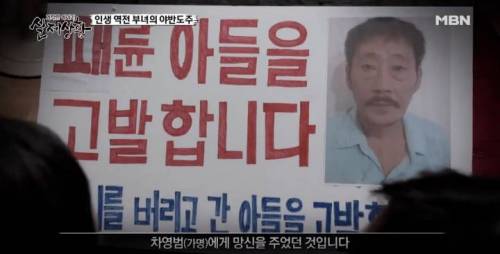 실제상황
인생 역전 부녀의 야반도주
MBN
패륜 아들을
고발합니다
를 버리고 간 아들을 고발
차영범(가명)에게 망신을 주었던 것입니다